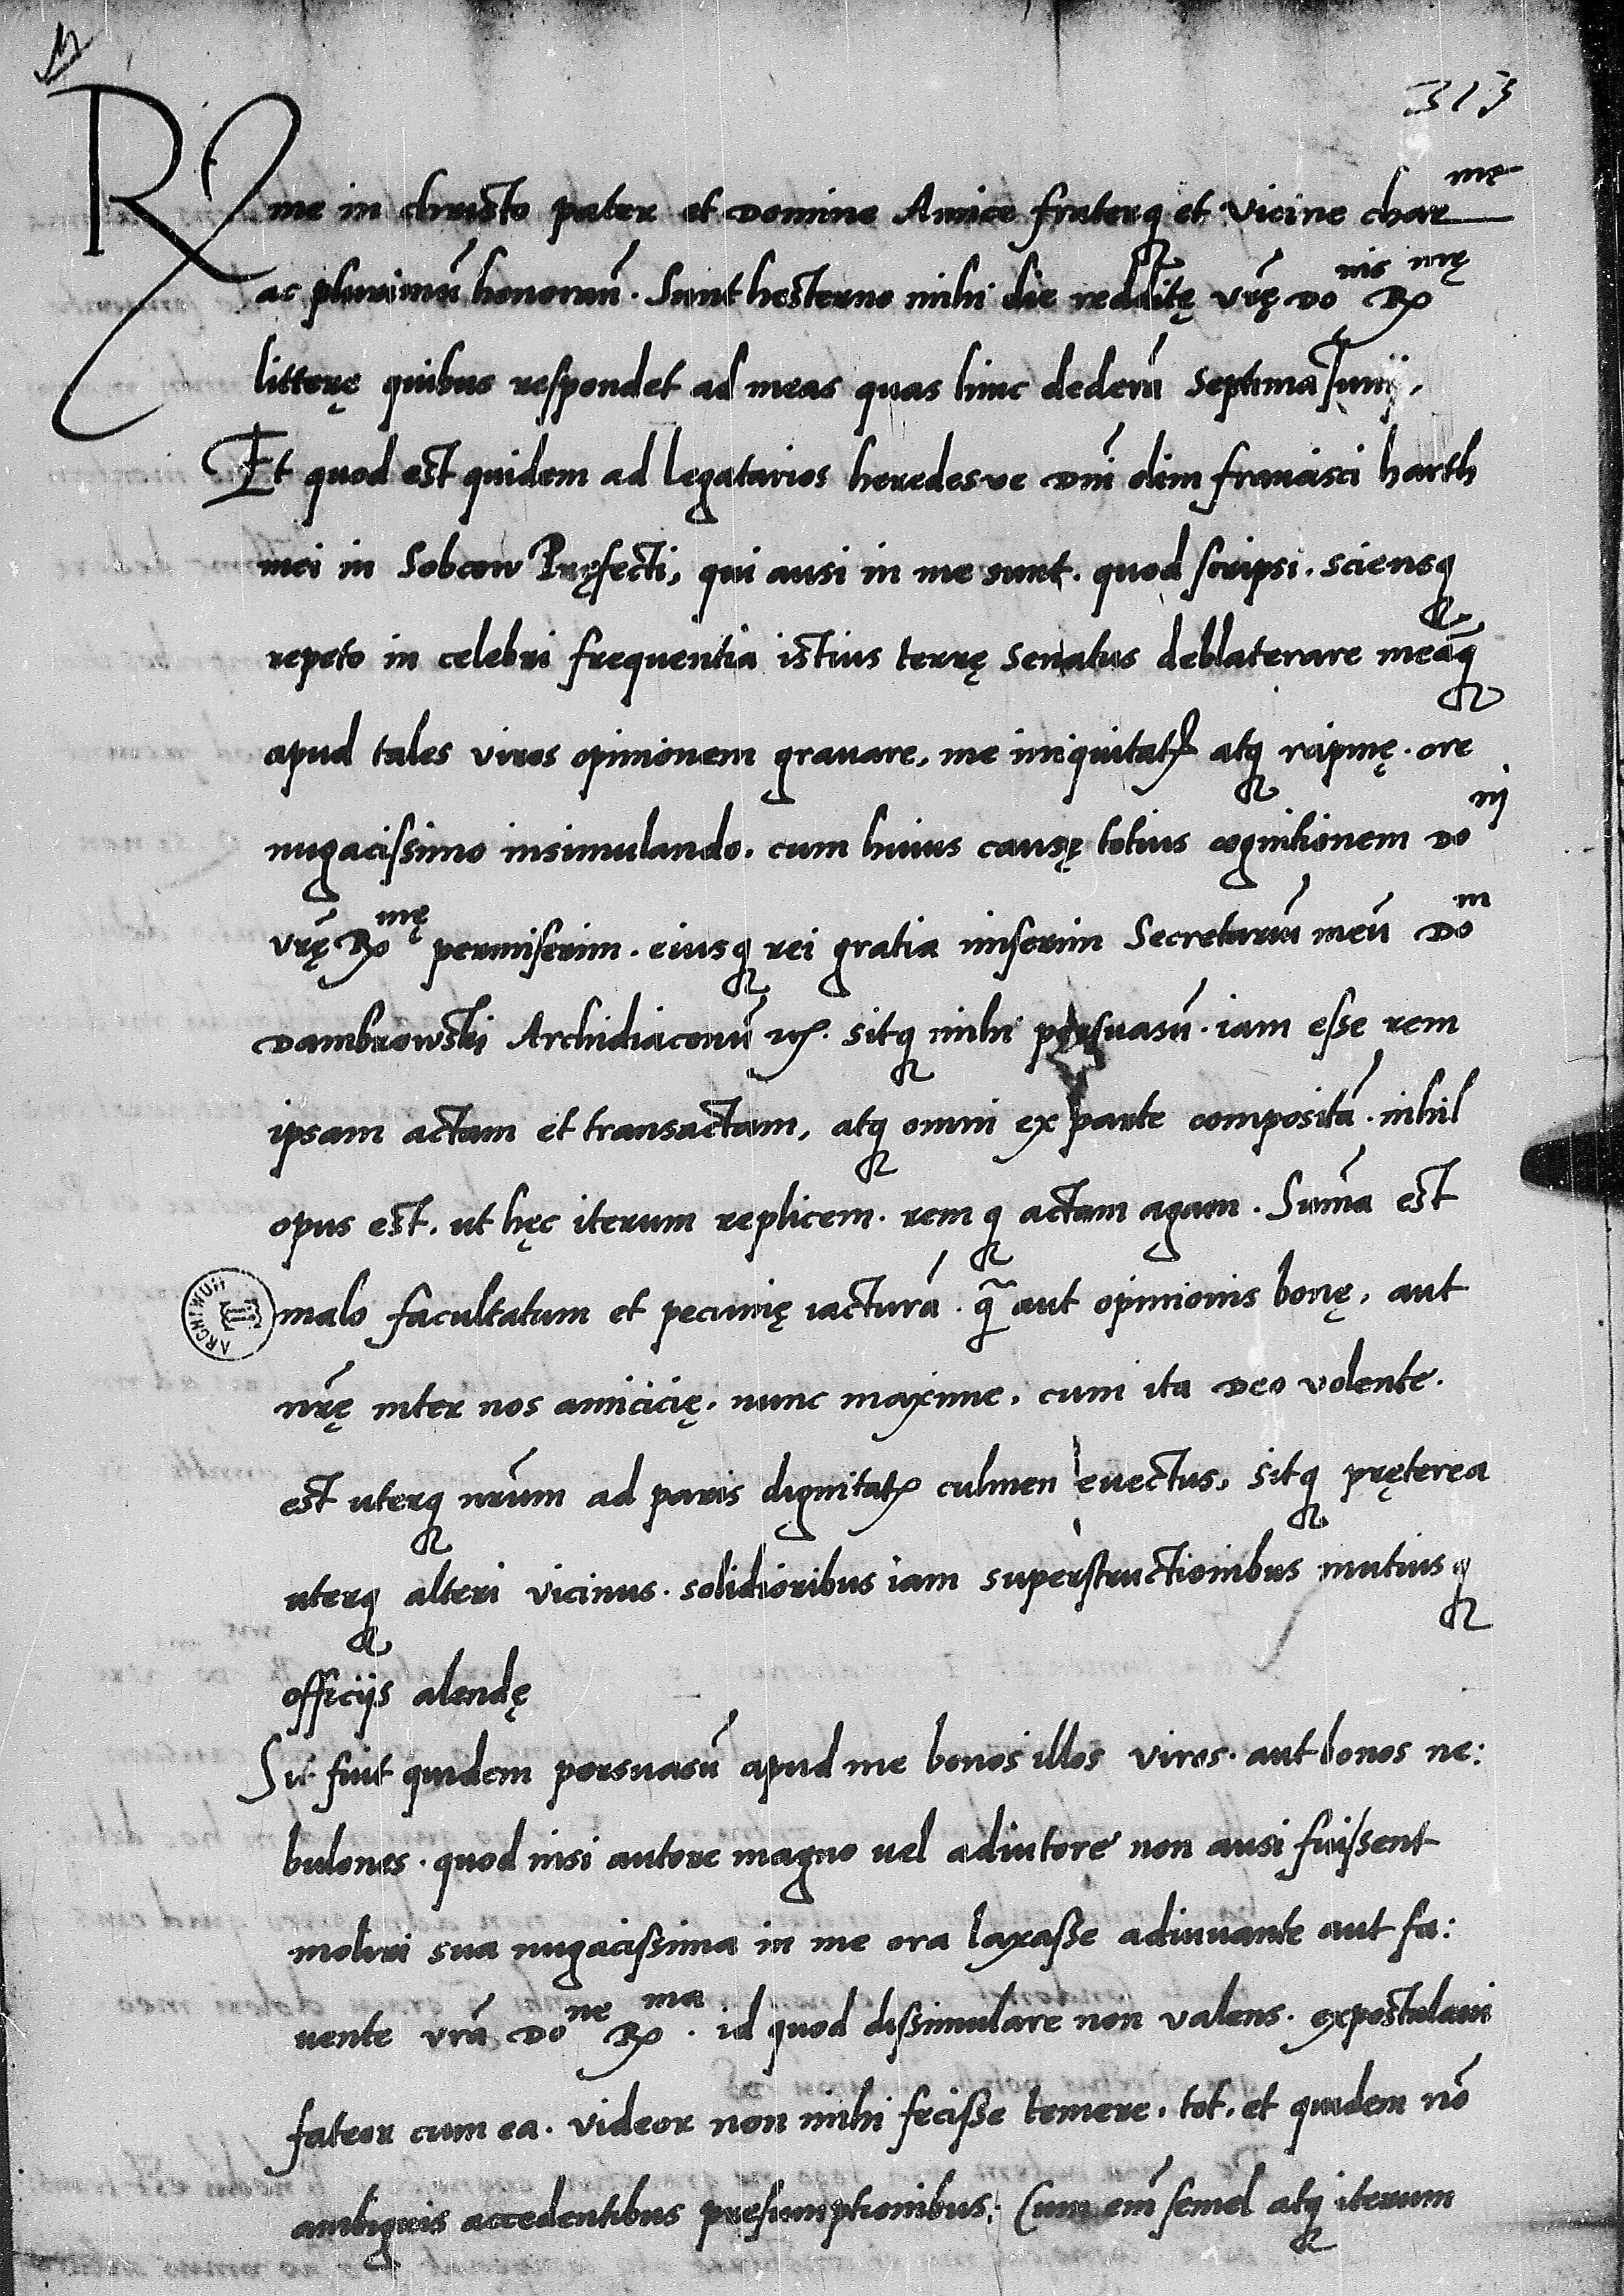 313
Rme in christo pater et Domine Amice fraterq₃ et Vicine charmę
ac plurimū honoranͫ. Sunt hesterno mihi die redditę vrę̄ Donis Rmę
litterę quibus respondet ad meas quas hinc dederā Septima Junij.
Et quod est quidem ad legatarios heredesve Dnī olim francisci harsth
mei in Sobcow Pręfecti, qui ausi in me sunt. quod scripsi. sciensq₃
repeto in celebri frequentia istius terrę Senatus deblaterare meāq₃
apud tales viros opinionem grauare, me iniquitatꝭ atq₃ rapinę. ore
nugacissimo insimulando. cum huius causę totius cognitionem Donj
vrę̄ Rmę permiserim. eiusq₃ rei gratia miserim Secretariū meū Dom
Dambrowski Archidiaconū etc. sitq₃ mihi persuasū. iam esse rem
ipsam actam et transactam, atq₃ omni ex parte compositā. nihil
opus est. ut hęc iterum replicem. remq₃ actam agam. Summa est
ARCHIWUM
malo facultatum et pecunię iacturā. q̄ aut opinionis bonę, aut
nrę̄ inter nos amicicię. nunc maxime, cum ita Deo volente.
est uterq₃ nrūm ad paris dignitatꝭ culmen euectus, sitq₃ pręterea
uterq₃ alteri vicinus. solidioribus iam superstructionibus mutuisq₃
officijs alendę
Sic fuit quidem persuasū apud me bonos illos viros. aut bonos ne:
bulones. quod nisi autore magno uel adiutore non ausi fuissent
moliri sua nugacissima in me ora laxasse adiuuante aut fa:
uente vrā Done Rma. id quod dissimulare non valens. expostulaui
fateor cum ea. videor non mihi fecisse temere. tot. et quidem nō
ambiguis accedentibus presumptionibus. Cum em̄ semel atq₃ iterum